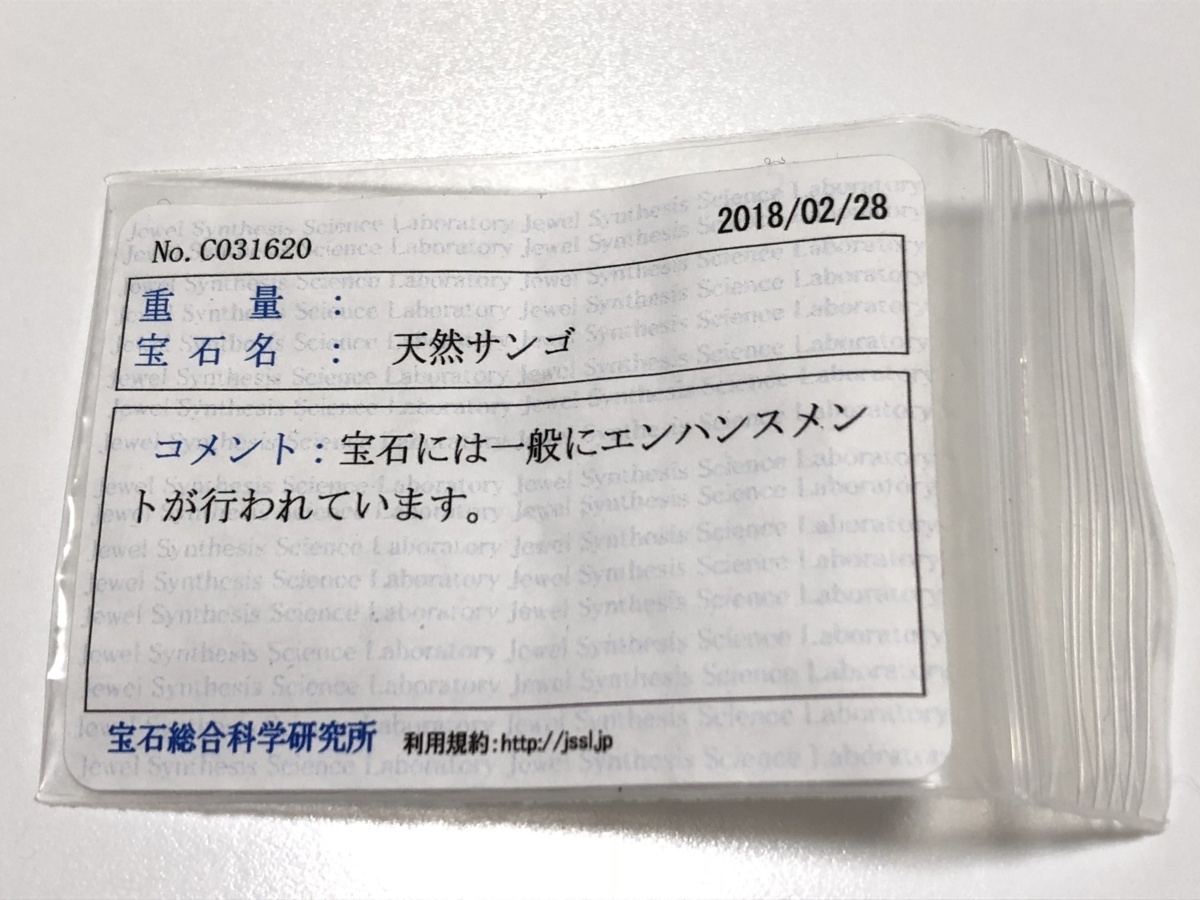 No. C031620
2018/02/28
重量：
宝石名：天然サンゴ
コメント：宝石には一般にエンハンスメン
トが行われています。
宝石総合科学研究所 利用規約:http://jssl.jp
Jewel Synthesis Science Laboratory Jewel Synthesis Science Laboratory